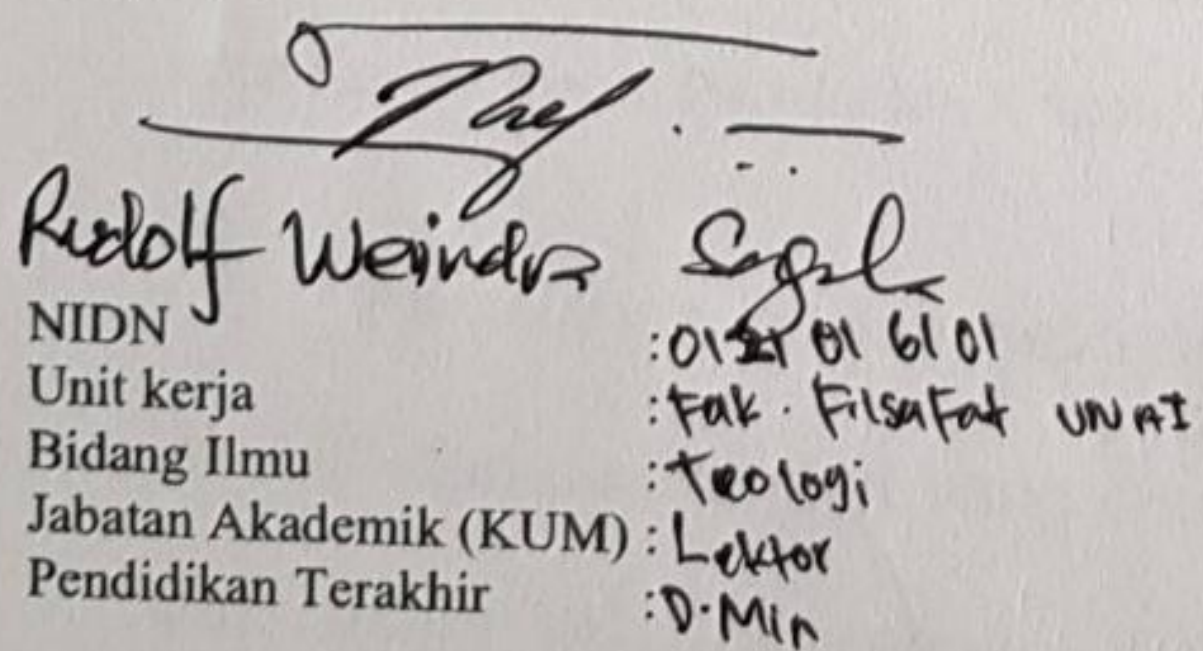 Rudolf Weindra Sagala
NIDN : 0121016101
Unit kerja : Fak. Filsafat UNAI
Bidang Ilmu : Teologi
Jabatan Akademik (KUM) : Lektor
Pendidikan Terakhir : D.Min